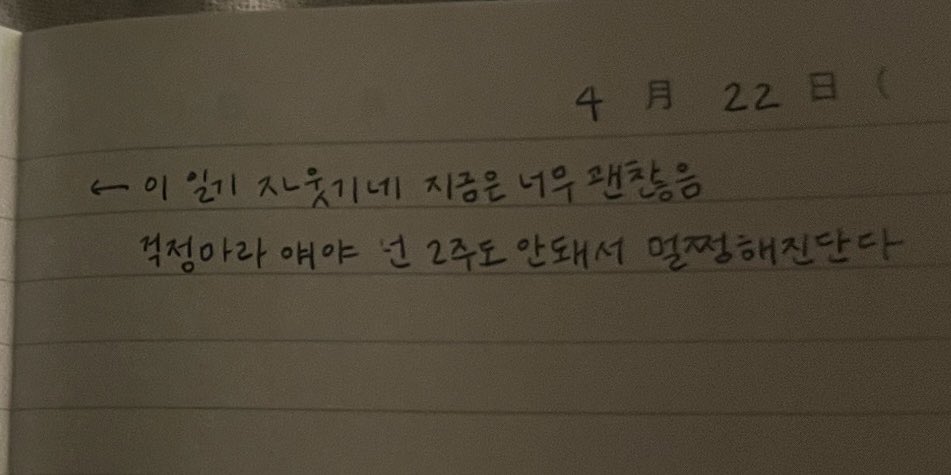 4 月 22 日 (
← 이 일기 ㅈㄴ웃기네 지금은 너무 괜찮음
걱정마라 얘야 넌 2주도 안돼서 멀쩡해진단다